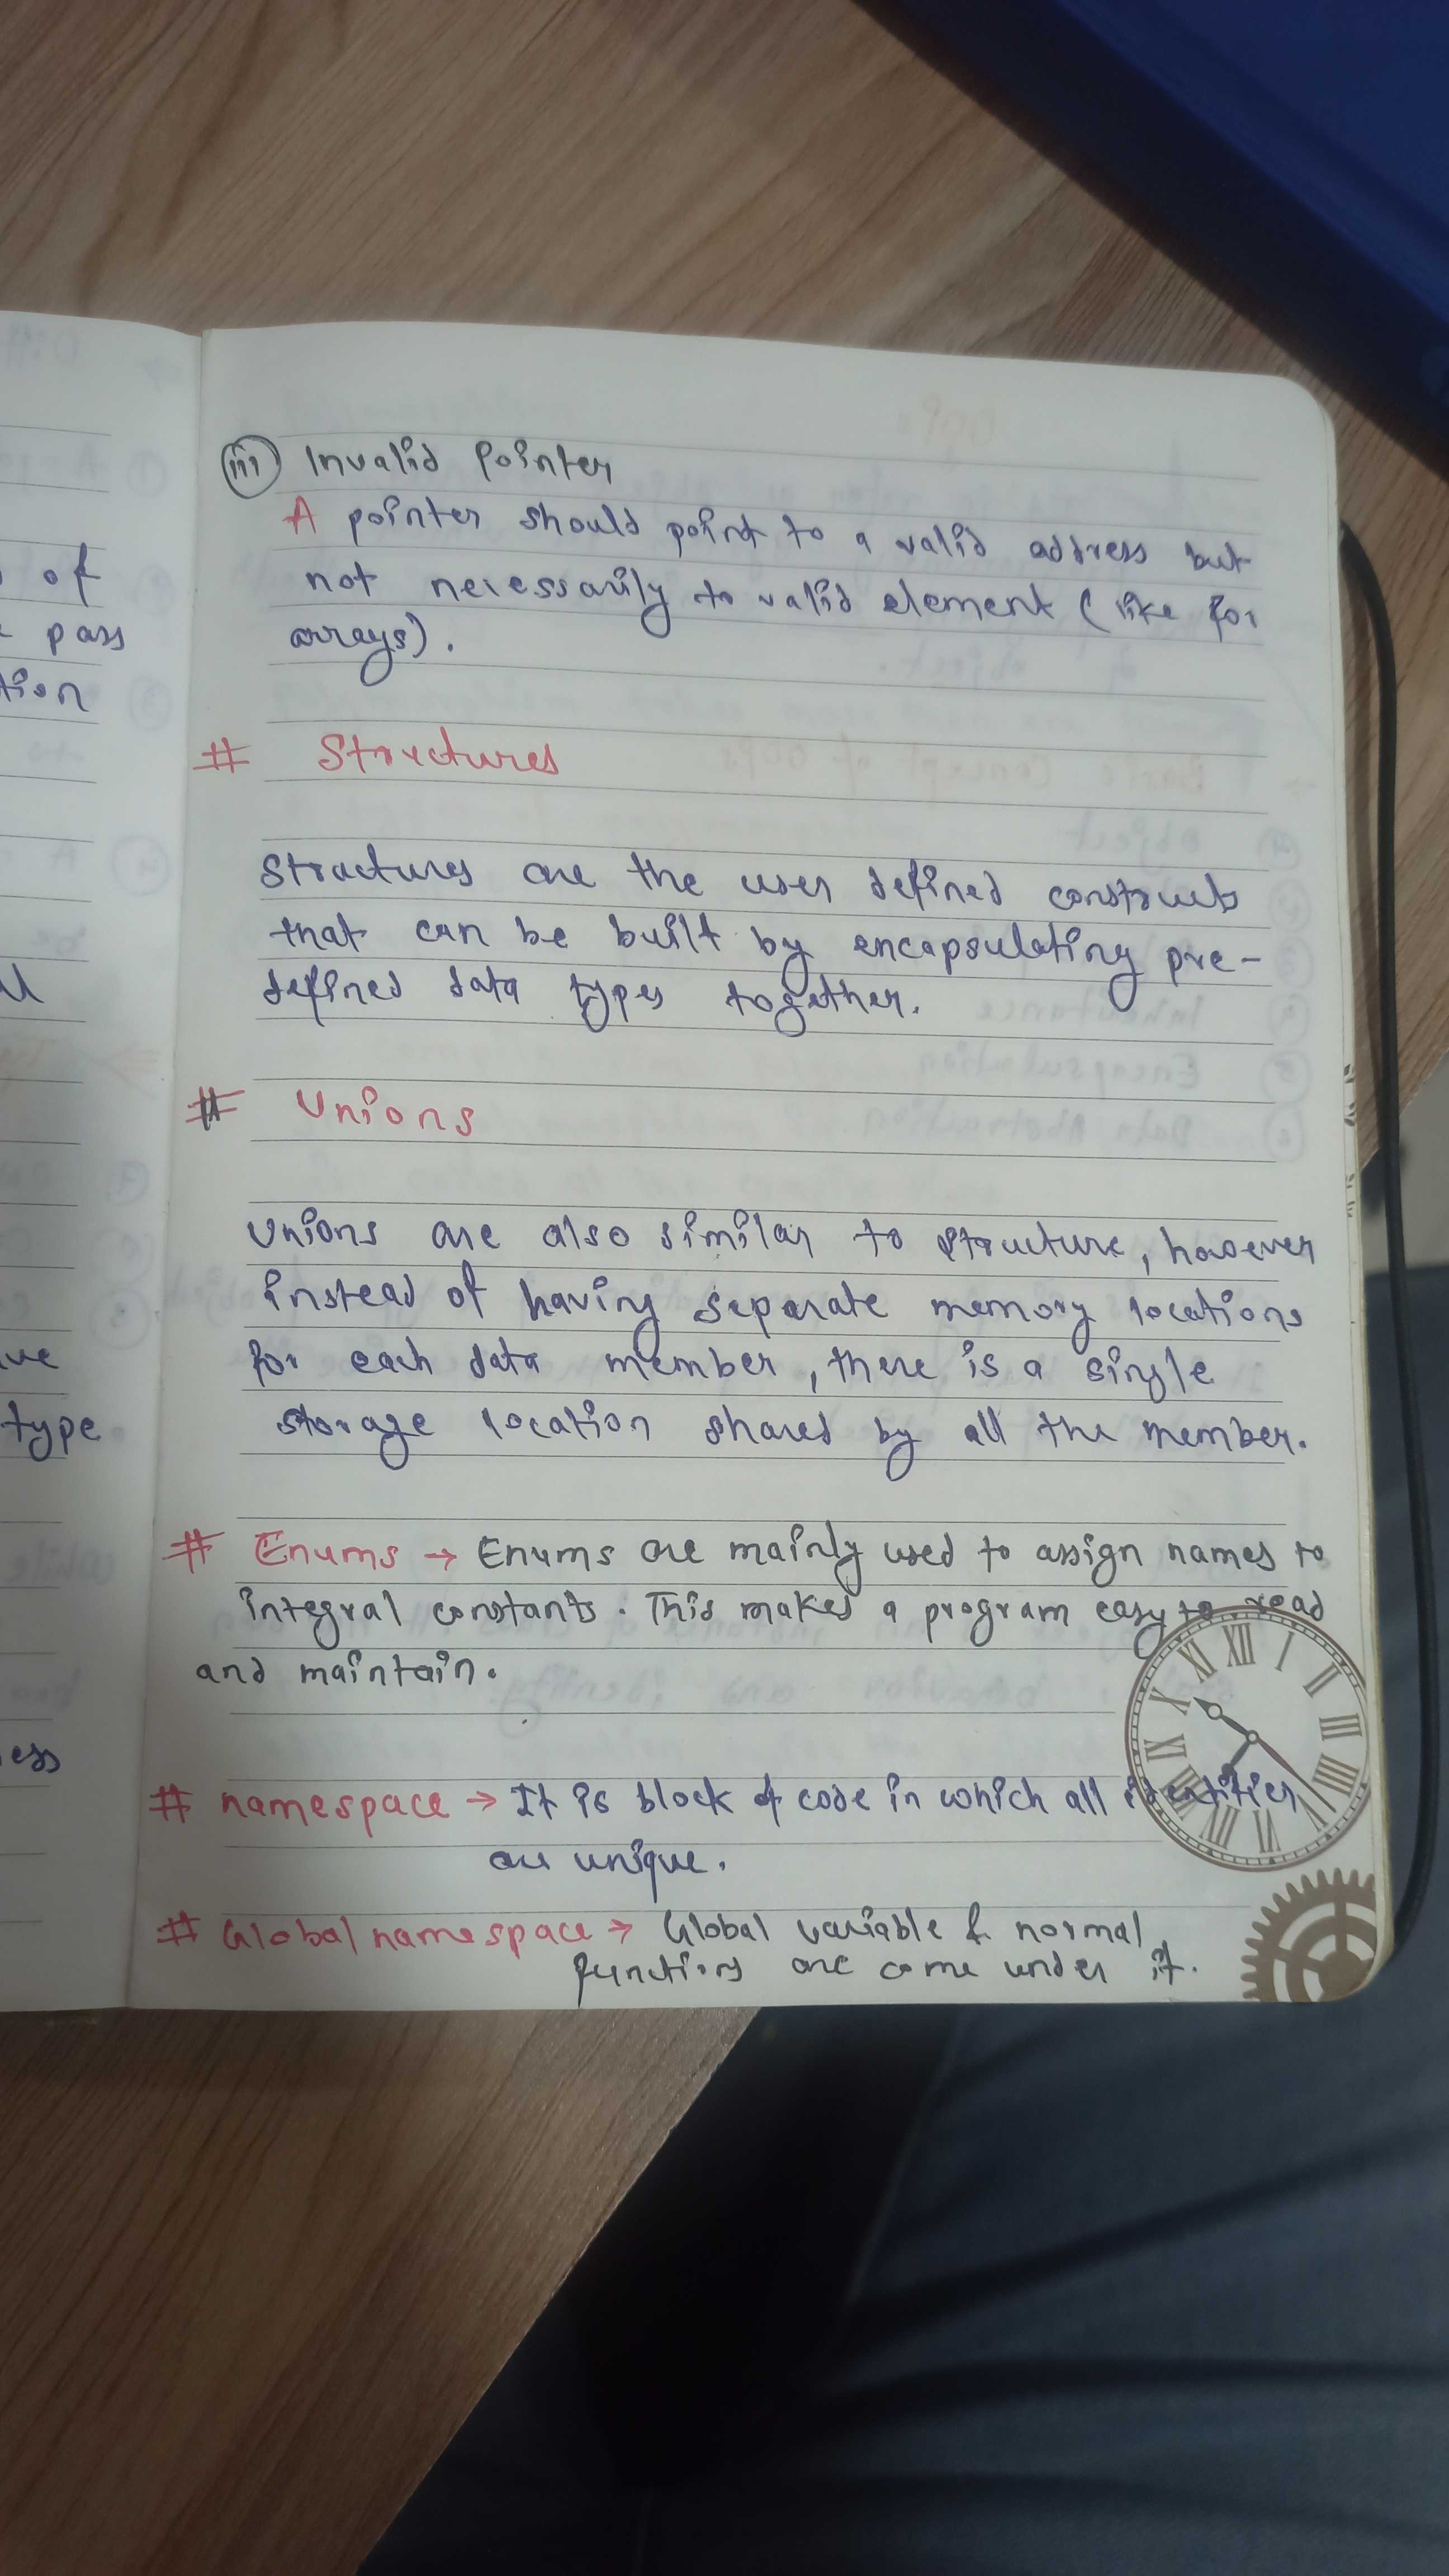 of
pass
tion
ve
type
ess
(iii) Invalid Pointer
A pointer should point to a valid address but
not necessarily to valid element (like for
arrays).
# Structures
Structures are the user defined constructs
that can be built by encapsulating pre-
defined data types together.
# Unions
Unions are also similar to structure, however
instead of having separate memory locations
for each data member, there is a single
storage location shared by all the member.
# Enums → Enums are mainly used to assign names to
integral constants. This makes a program easy to read
and maintain.
# namespace → It is block of code in which all identifier
are unique.
# Global namespace → Global variable & normal
functions are come under it.
XII I II III IIII VI VII VIII IX X XI